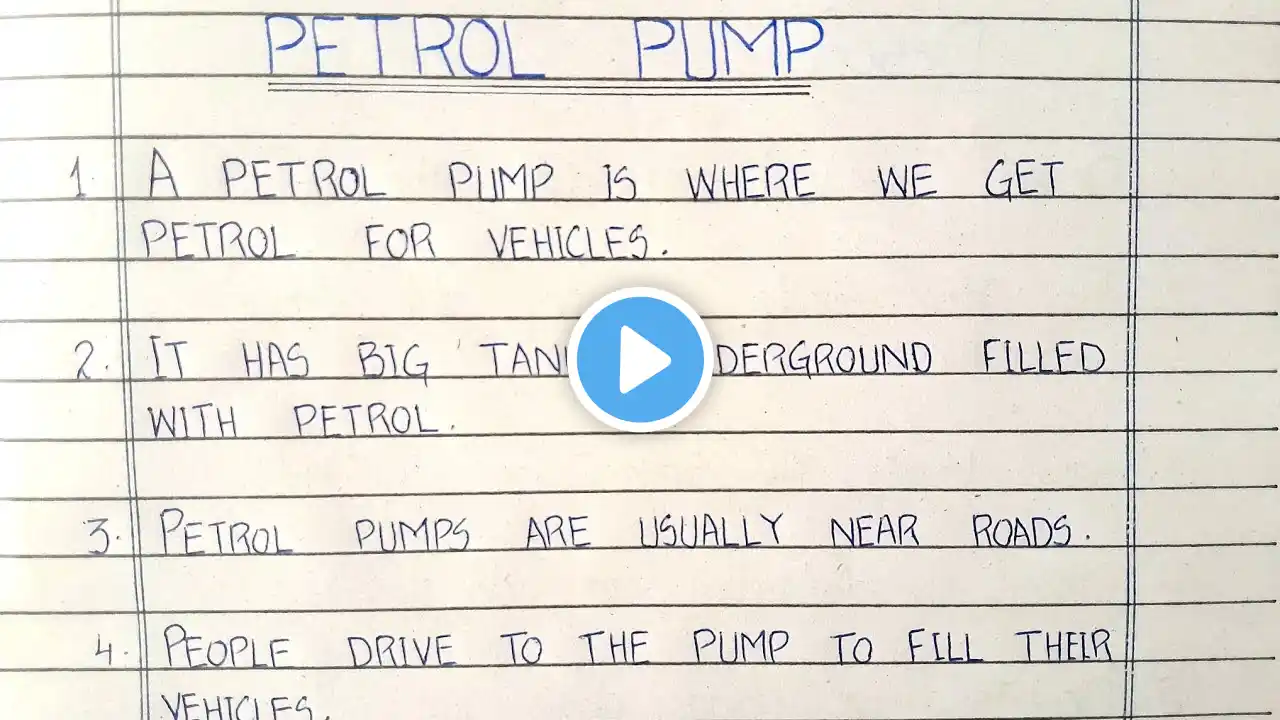 PETROL PUMP
1. A PETROL PUMP IS WHERE WE GET
PETROL FOR VEHICLES.
2. IT HAS BIG TAN DERGROUND FILLED
WITH PETROL.
3. PETROL PUMPS ARE USUALLY NEAR ROADS.
4. PEOPLE DRIVE TO THE PUMP TO FILL THEIR
VEHICLES.